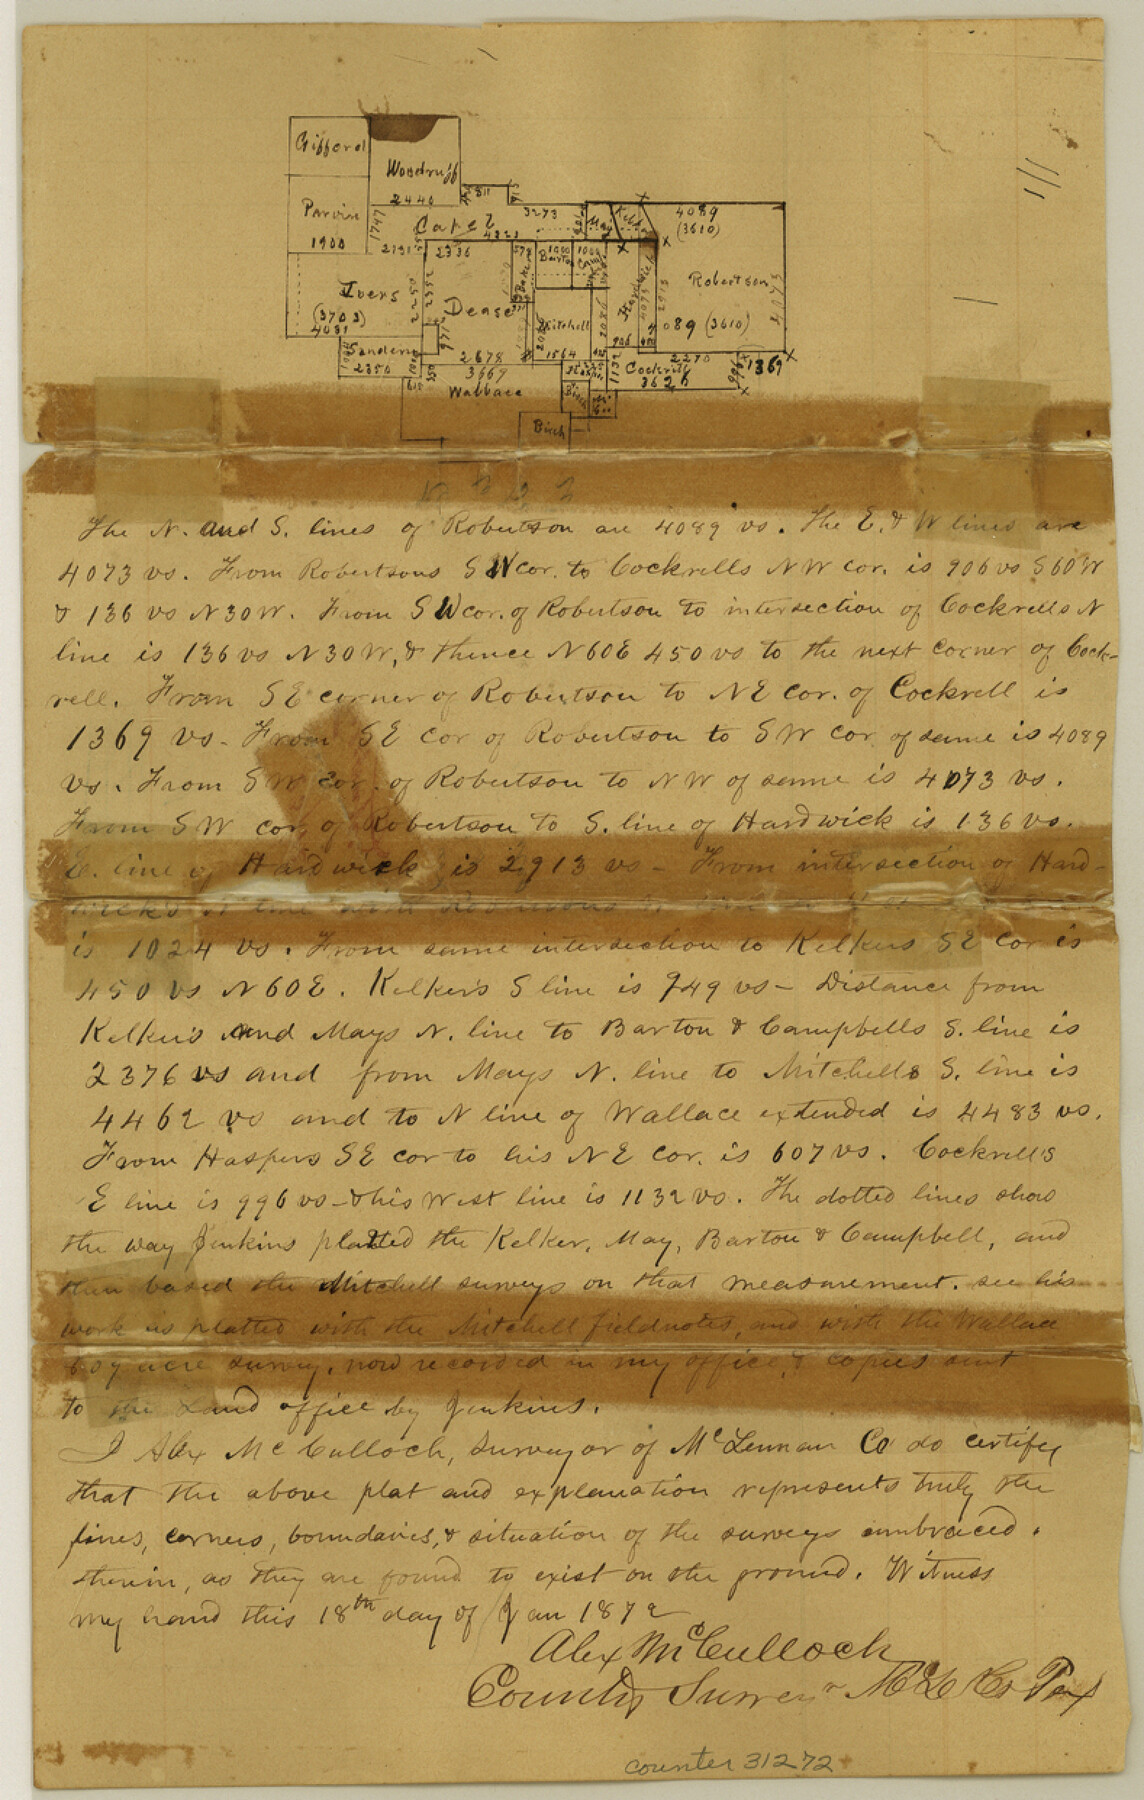 Gifford
Woodruff
2440
Parvin
1900
1747
811
3273
Cartel
4323
2191
2336
578
May
Kelker
4089
(3610)
Barton
1000
1000
Camp
Baker
Hardwick
4073
2913
Robertson
4073
Ivers
(3703)
4031
2250
2352
Dease
971
Mitchell
2086
2086
1564
906
450
4089 (3610)
Sanders
2350
2678
3669
Wallace
Hasper
1132
Cockrell
3626
2270
996
1369
Birch
Birch
The N. and S. lines of Robertson are 4089 vs. The E. & W lines are
4073 vs. From Robertsons S W cor. to Cockrells N W cor. is 906 vs S 60 W
& 136 vs N 30 W. From S W cor. of Robertson to intersection of Cockrells N
line is 136 vs N 30 W, & thence N 60 E 450 vs to the next corner of Cock-
rell. From S E corner of Robertson to N E cor. of Cockrell is
1369 vs. From S E cor of Robertson to S W cor. of same is 4089
vs. From S W cor. of Robertson to N W of same is 4073 vs.
From S W cor. of Robertson to S. line of Hardwick is 136 vs.
E. line of Hardwick is 2913 vs - From intersection of Hard-
wick's N line with Robertsons
is 1024 vs. From same intersection to Kelkers S E cor is
450 vs N 60 E. Kelker's S line is 949 vs - Distance from
Kelker's and Mays N. line to Barton & Campbells S. line is
2376 vs and from Mays N. line to Mitchells S. line is
4462 vs and to N line of Wallace extended is 4483 vs.
From Haspers S E cor to his N E cor. is 607 vs. Cockrell's
E line is 996 vs - & his West line is 1132 vs. The dotted lines show
the way Jenkins platted the Kelker, May, Barton & Campbell, and
then based the Mitchell surveys on that measurement. see his
work as platted with the Mitchell fieldnotes, and with the Wallace
acre survey, now recorded in my office, & copies sent
to the Land office by Jenkins.
I Alex McCulloch, Surveyor of McLennan Co do certify
that the above plat and explanation represents truly the
lines, corners, boundaries, & situation of the surveys embraced
therein, as they are found to exist on the ground. Witness
my hand this 18th day of Jan 1872
Alex McCulloch
County Surveyr McL Co Tex
counter 31272